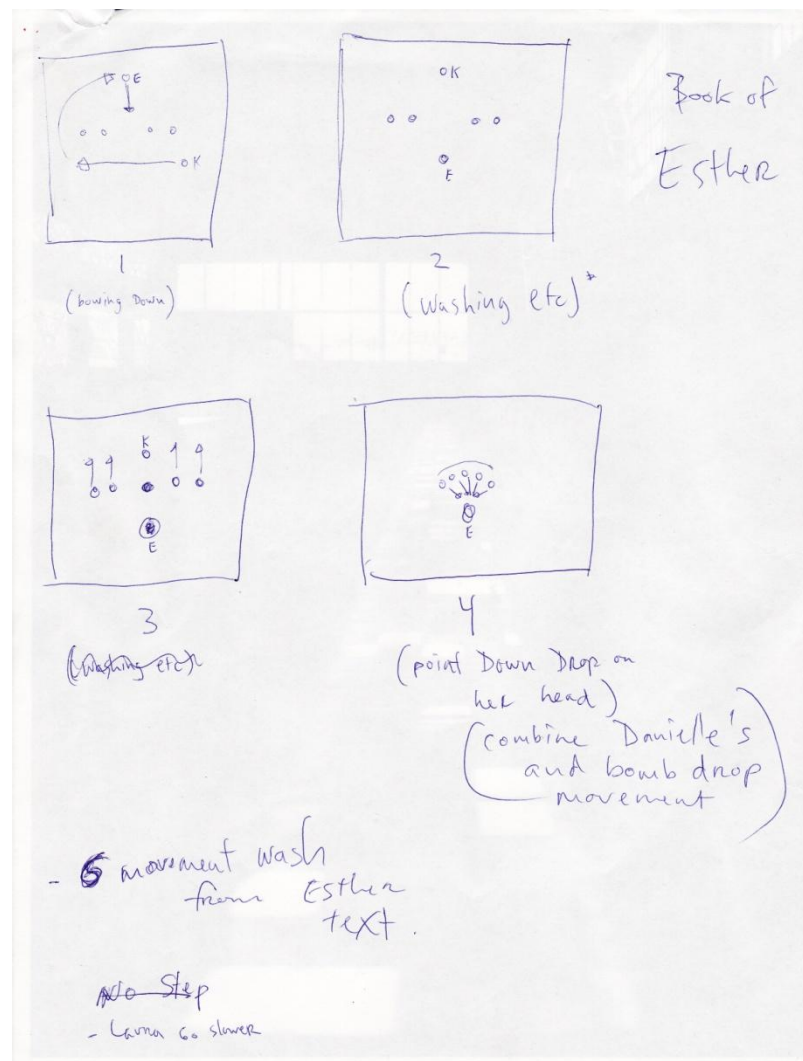 Book of
Esther
E
K
1
(bowing Down)
K
E
2
(washing etc)*
K
E
3
(washing etc)
E
4
(point Down Drop on
her head)
(combine Danielle's
and bomb drop
movement)
- 5 movement wash
from Esther
text.
No Step
- Go slower